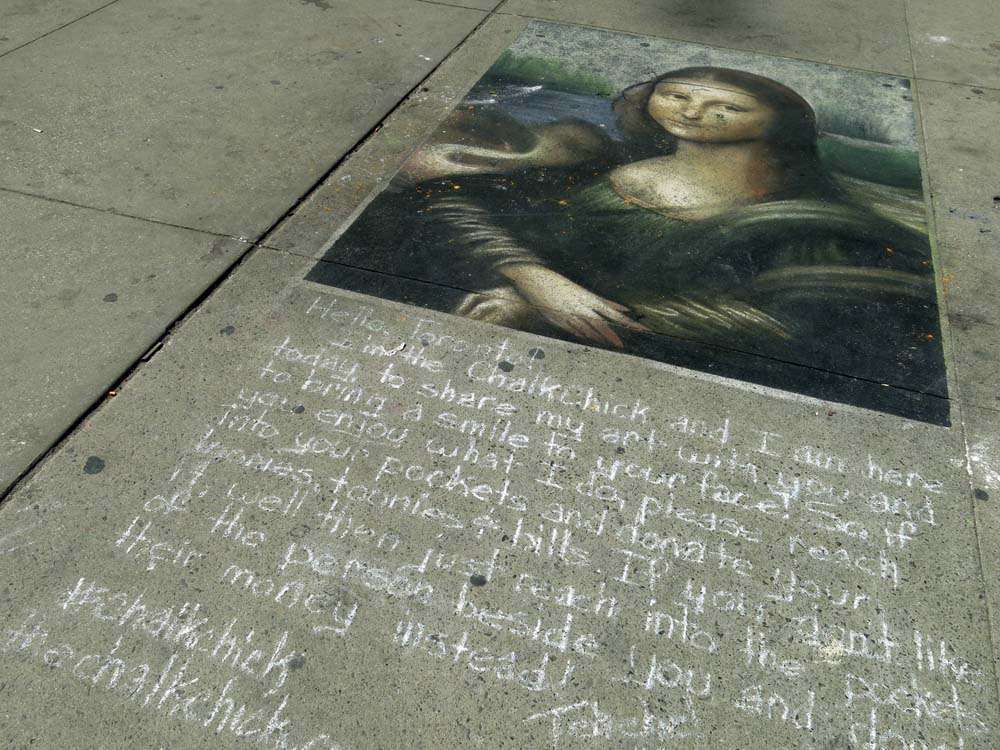 Hello, Toronto
I'm the Chalkchick and I am here
today to share my art with you and
to bring a smile to your face! So if
you enjoy what I do, please reach
into your pockets and donate your
loonies, toonies & bills. If you dont like
it, well then just reach into the pockets
of the person beside you and
their money instead!
#chalkchick